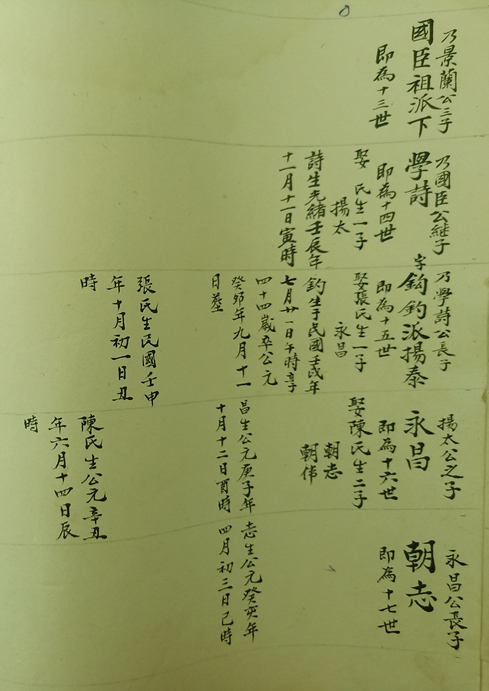 乃景蘭公三子
國臣祖派下
即為十三世
乃國臣公繼子
學詩
即為十四世
娶 氏生一子
揚太
詩生光緒壬辰年
十一月十一日寅時
乃學詩公長子
字鈎鈞派揚泰
即為十五世
娶張氏生一子
永昌
鈞生于民國壬戌年
七月廿一日午時享
四十四歲卒公元
癸卯年九月十一
日葬
張氏生民國壬申
年十月初一日丑
時
揚太公之子
永昌
即為十六世
娶陳氏生二子
朝志
朝伟
昌生公元庚子年
十月十二日酉時
陳氏生公元辛丑
年六月十四日辰
時
永昌公長子
朝志
即為十七世
志生公元癸亥年
四月初三日己時